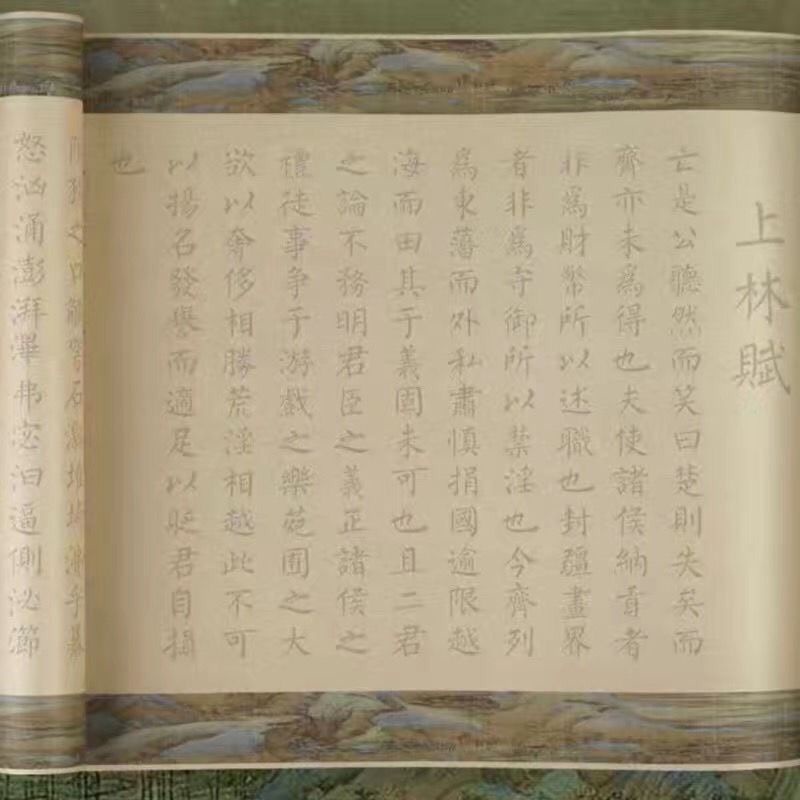 上林賦
亡是公聽然而笑曰楚則失矣而
齊亦未為得也夫使諸侯納貢者
非為財幣所以述職也封疆畫界
者非為守御所以禁淫也今齊列
為東藩而外私肅慎捐國逾限越
海而田其于義固未可也且二君
之論不務明君臣之義正諸侯之
禮徒事爭于游戲之樂苑囿之大
欲以奢侈相勝荒淫相越此不可
以揚名發譽而適足以貶君自損
也
狹之口觸穹石激堆埼沸乎暴
怒汹涌澎湃滭弗宓汩逼側泌瀄